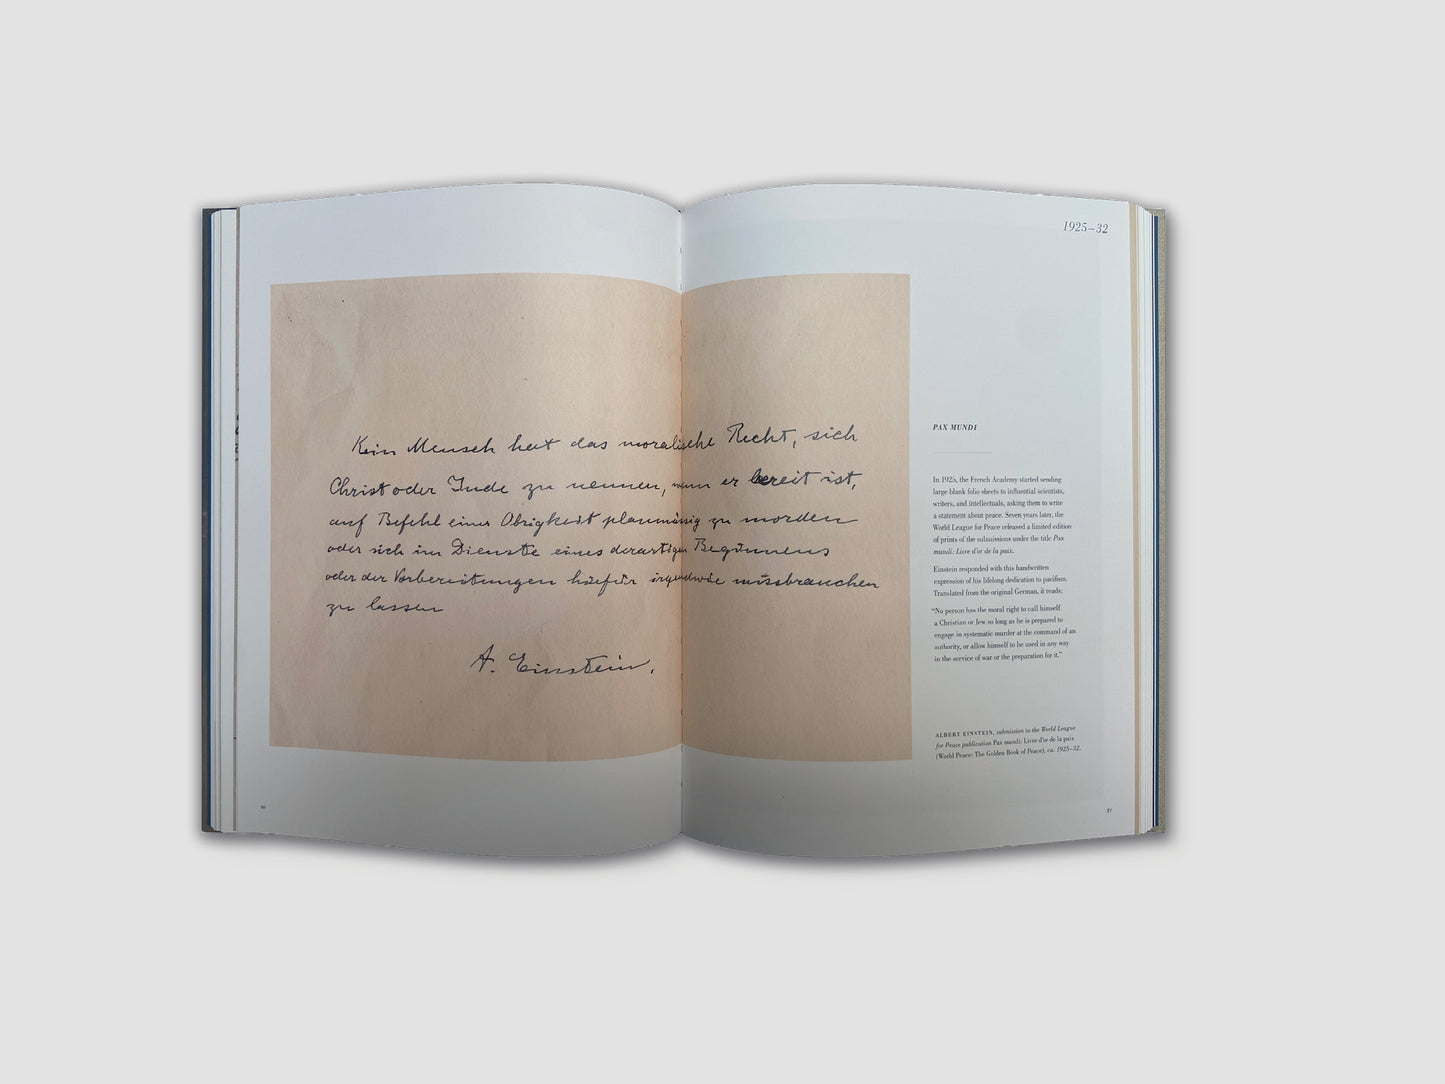 Kein Mensch hat das moralische Recht, sich
Christ oder Jude zu nennen, wenn er bereit ist,
auf Befehl einer Obrigkeit planmässig zu morden
oder sich im Dienste eines derartigen Beginnens
oder der Vorbereitungen hiefür irgendwie missbrauchen
zu lassen
A. Einstein.
86
1925–32
PAX MUNDI
In 1925, the French Academy started sending
large blank folio sheets to influential scientists,
writers, and intellectuals, asking them to write
a statement about peace. Seven years later, the
World League for Peace released a limited edition
of prints of the submissions under the title Pax
mundi: Livre d'or de la paix.
Einstein responded with this handwritten
expression of his lifelong dedication to pacifism.
Translated from the original German, it reads:
“No person has the moral right to call himself
a Christian or Jew so long as he is prepared to
engage in systematic murder at the command of an
authority, or allow himself to be used in any way
in the service of war or the preparation for it.”
ALBERT EINSTEIN, submission to the World League
for Peace publication Pax mundi: Livre d'or de la paix
(World Peace: The Golden Book of Peace), ca. 1925–32.
87